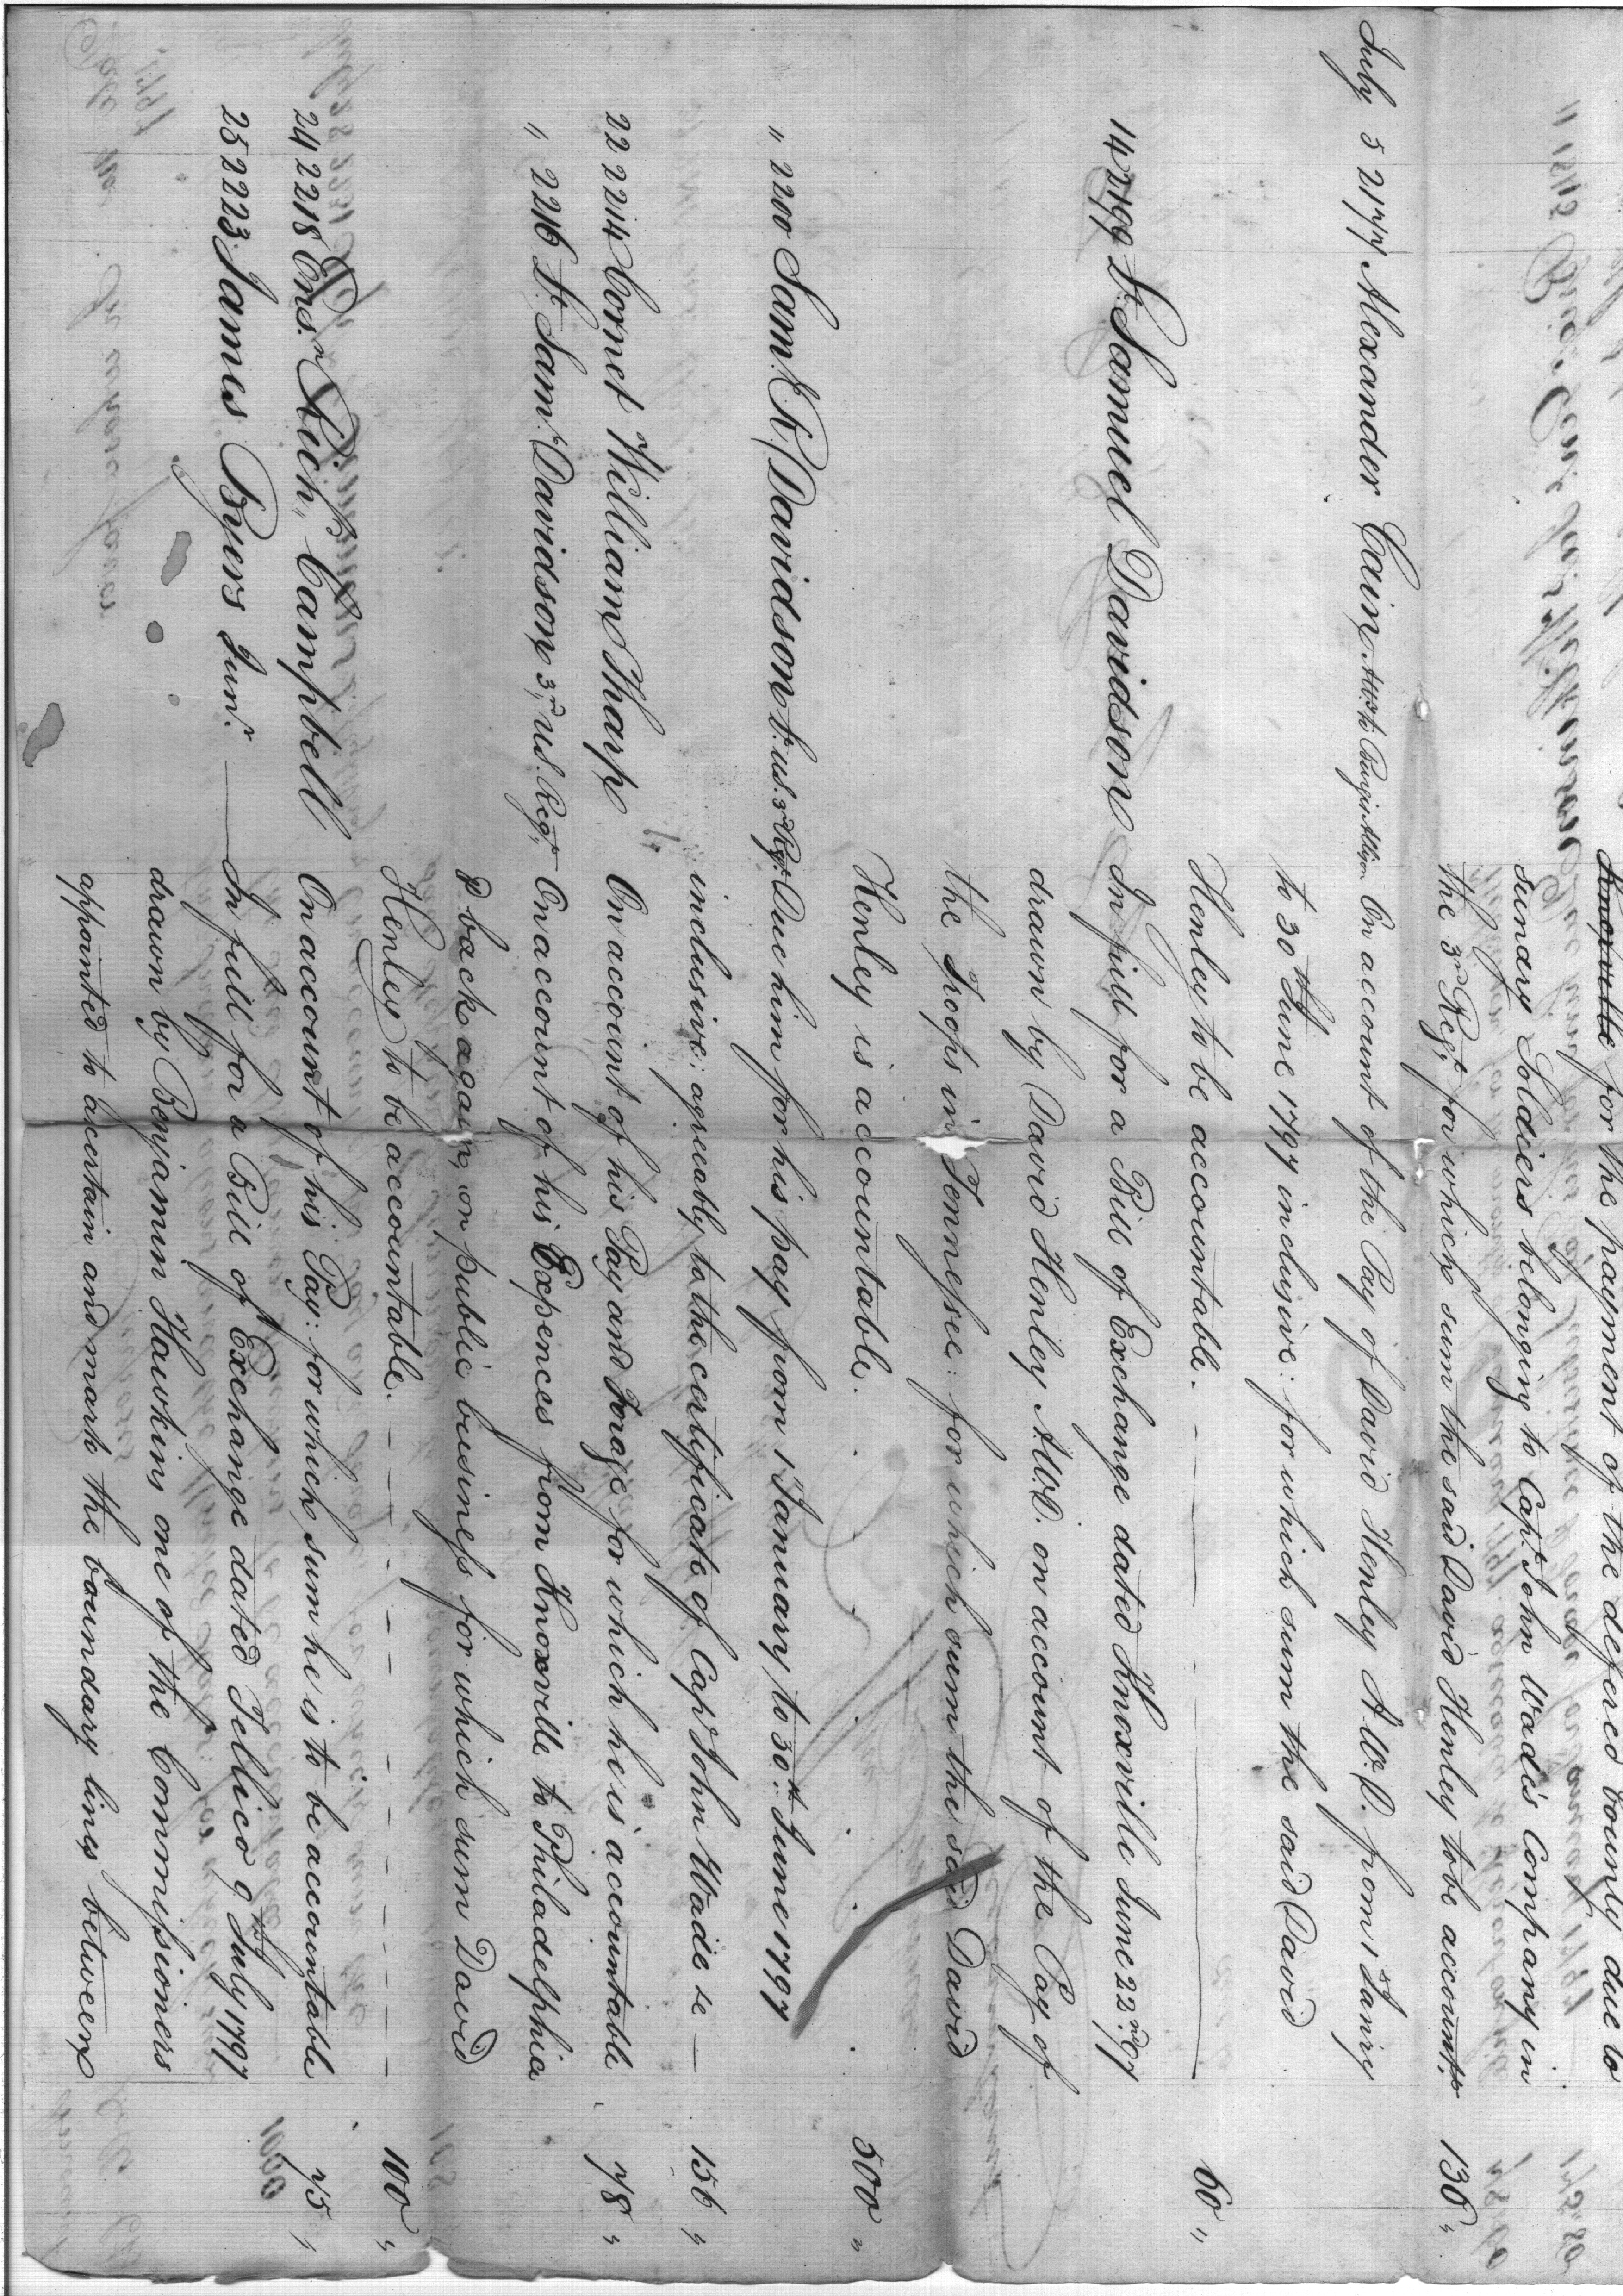 Knoxville for the payment of the defered bounty due to
sundry Soldiers belonging to Capt. John Wade's Company in
the 3rd Regt. for which sum the said David Henley to be accountr. 130 "
July 5 2177 Alexander Cain On account of the Pay of David Henley A.W.D. from 1st Janry
to 30th June 1797 inclusive: for which sum the said David
Henley to be accountable. 60 "
14 2199 Lt. Samuel Davidson In full for a Bill of Exchange dated Knoxville June 22nd. 97
drawn by David Henley A.W.D. on account of the Pay of
the Troops in Tennessee: for which sum the said David
Henley is accountable. 500 "
" 2200 Saml. R. Davidson Lt. U.S. 3rd Regt. Due him for his pay from 1st January to 30th June 1797
inclusive; agreeably to the certificate of Capt John Wade &c — 156 "
22 2214 Cornet William Tharp On account of his Pay and Forage for which he is accountable 78 "
" 2216 Lt. Saml. Davidson, 3rd U.S. Regt. On account of his Expences from Knoxville to Philadelphia
& back again, on public business for which sum David
Henley to be accountable. 100 "
24 2218 Ensn. Richd. Campbell On account of his Pay: for which sum he is to be accountable 75 "
25 2223 James Byers Junr. — In full for a Bill of Exchange dated Tellico 9th July 1797
drawn by Benjamin Hawkins one of the Commissioners
appointed to acertain and mark the boundary lines between